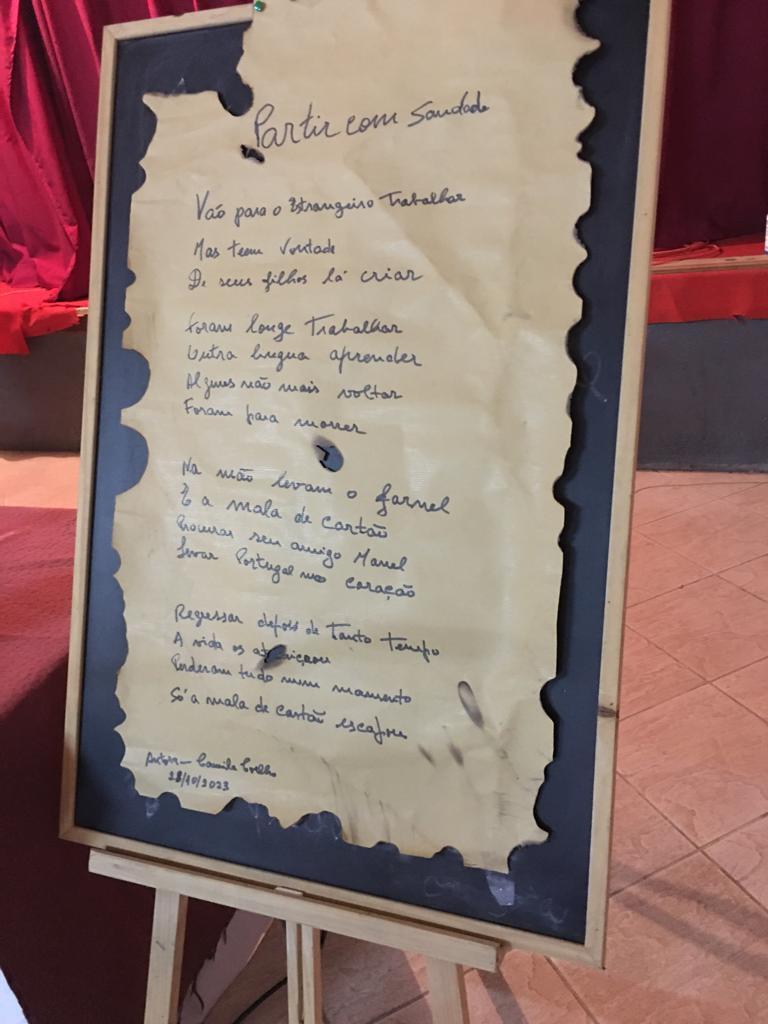 Partir com Saudade
Vão para o Estrangeiro Trabalhar
Mas teem Vontade
De seus filhos lá criar
Foram longe Trabalhar
Outra lingua aprender
Alguns não mais voltar
Foram para morrer
Na mão levam o farnel
E a mala de cartão
Procurar seu amigo Manel
Levar Portugal no coração
Regressar depois de Tanto Tempo
A vida os
Perderam tudo num momento
Só a mala de cartão escapou
Autor - Camilo Coelho
28/10/2023